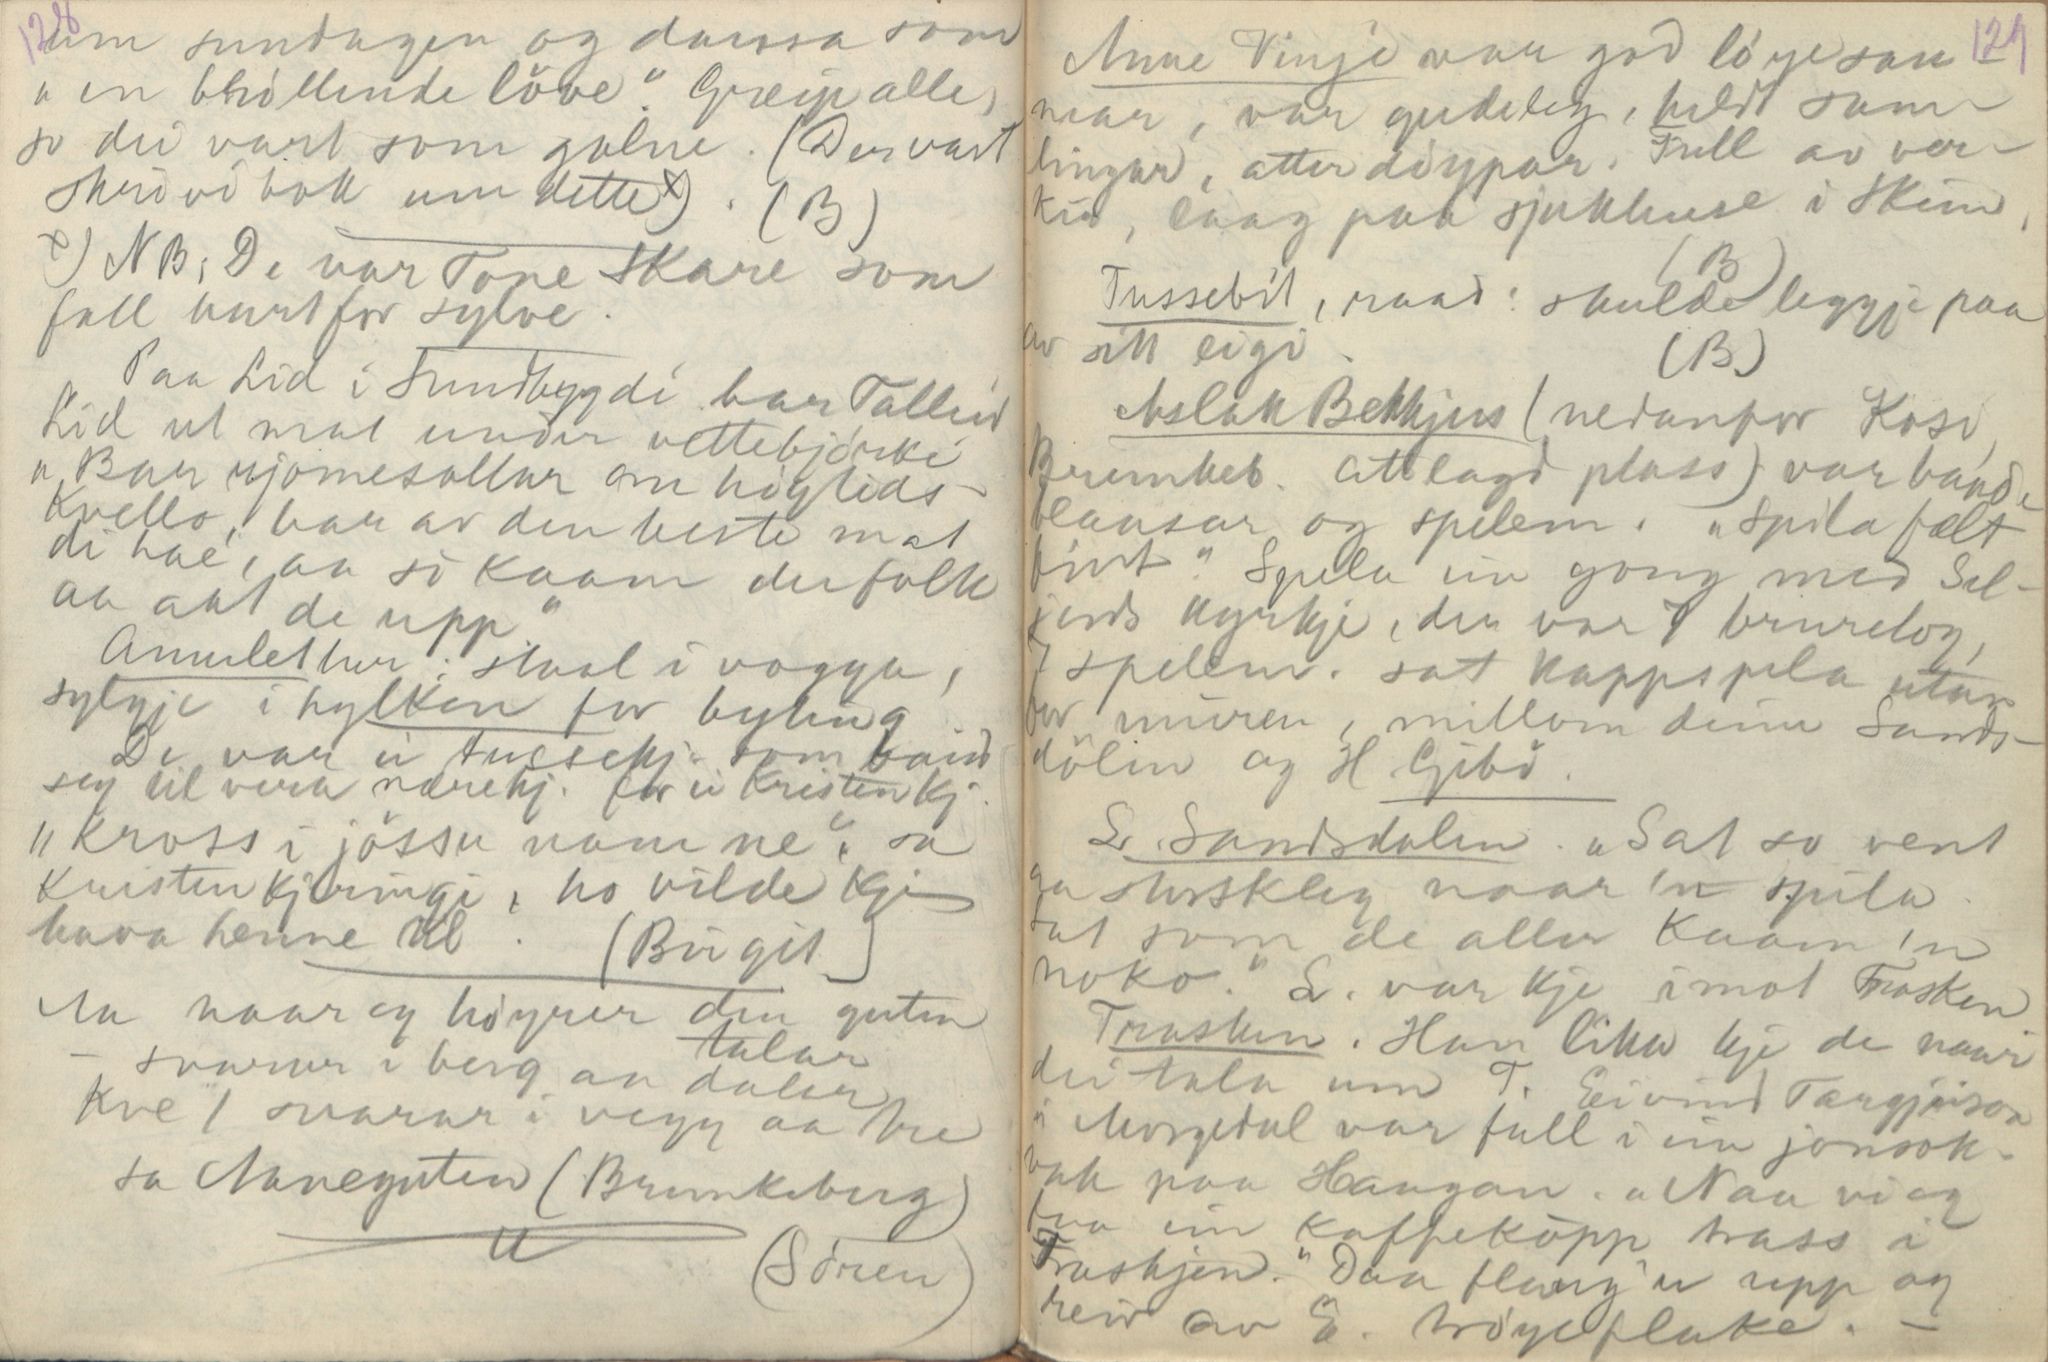 128
um sundagen og dansa som
"en brøllende löve". Greip alle,
so dei vart som galne. (Der vart
skrivi bok um dette x). (B)
x) NB; De var Tone Skare som
fall burt for sylve.
Paa Lid i Sundbygdi bar Talleiv
Lid ut mat under vettebjørki
"Bar rjomesollar om høgtids-
kvello, bar av den beste mat
di hae, aa so kaam der folk
aa aat de upp"
Amulettur: staal i vogga,
sylgje i hylken for byting
De var ei tussekj. som baud
seg til vera nærekj. for ei kristenkj.
"Kross i jössu namne", sa
kristenkjeringi, ho vilde kje
hava henne til. (Birgit)
Aa naar eg høyrer den guten
talar
- svarar i berg aa dalar
Kve / svarar i vegg aa tre
sa Naneguten (Brunkeberg)
(Sören)
129
Anne Vinje var god løgesan
mar, var gudeleg, heldt sam-
lingar, atterdøypar. Full av ver-
kid, laag paa sjukhuse i Skien,
(B)
Tussebit, raad: skulde leggje paa
av sitt eigi. (B)
Aslak Bekhjus (nedanfor Kosi,
Brunkeb. attlagd plass) var baade
dansar og spelem. "Spila fælt
fint." Spela ein gong med Sel-
jords kyrkje, der var 7 brurelog,
7 spelem. sat kappspela utan
for muren, millom deim Sands-
dölin og H Gibö.
L. Sandsdalen. "Sat so vent
ga skrskleg naar 'n spila.
Sat som de aller kaam 'n
noko." L. var kje imot Frasken
Trasken. Han lika kje de naar
dei tala um T. Eivind Targjeison
i Morgedal var full i ein jonsok-
vak paa Haugan. "Naa vi eg
faa ein kaffeköpp trass i
Traskjen." Daa flaug'u upp og
reiv av E. trøyeflake. -